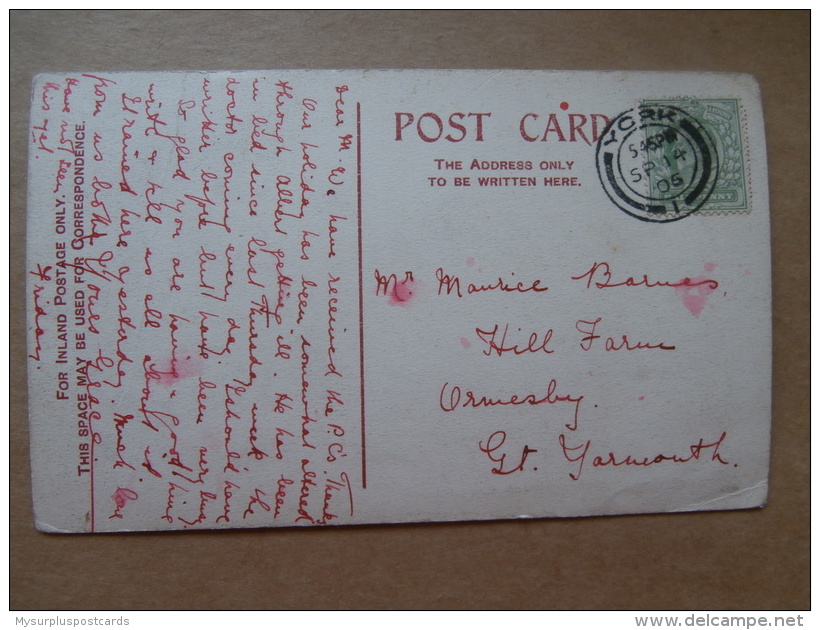 Dear M. We have received the P.C. Thanks
Our holiday has been somewhat altered
through Albert getting ill. He has been
in bed since last Thursday week the
doctor coming every day. I should have
written before but have been very busy.
So glad you are having a good thing
with & tell us all about it
It rained here yesterday. Much love
from us both. Yours Grace.
Have not been
this yet.
Friday.
FOR INLAND POSTAGE ONLY.
THIS SPACE MAY BE USED FOR CORRESPONDENCE.
POST CARD
THE ADDRESS ONLY
TO BE WRITTEN HERE.
YORK
5.45PM
SP 14
05
1
PENNY
Mr Maurice Barnes,
Hill Farm
Ormesby.
Gt. Yarmouth.
Mysurpluspostcards
delcampe.net